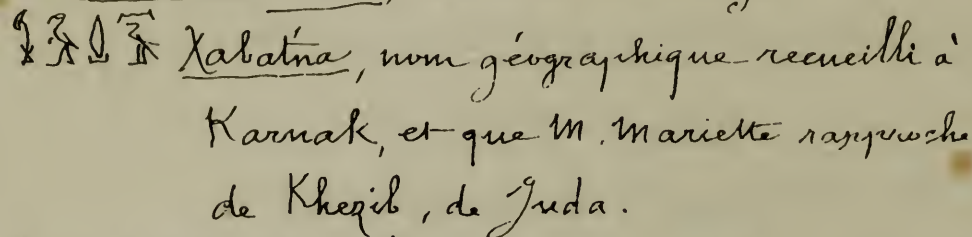 Xabatna, nom géographique recueilli à
Karnak, et que M. Mariette rapproche
de Khezib, de Juda.